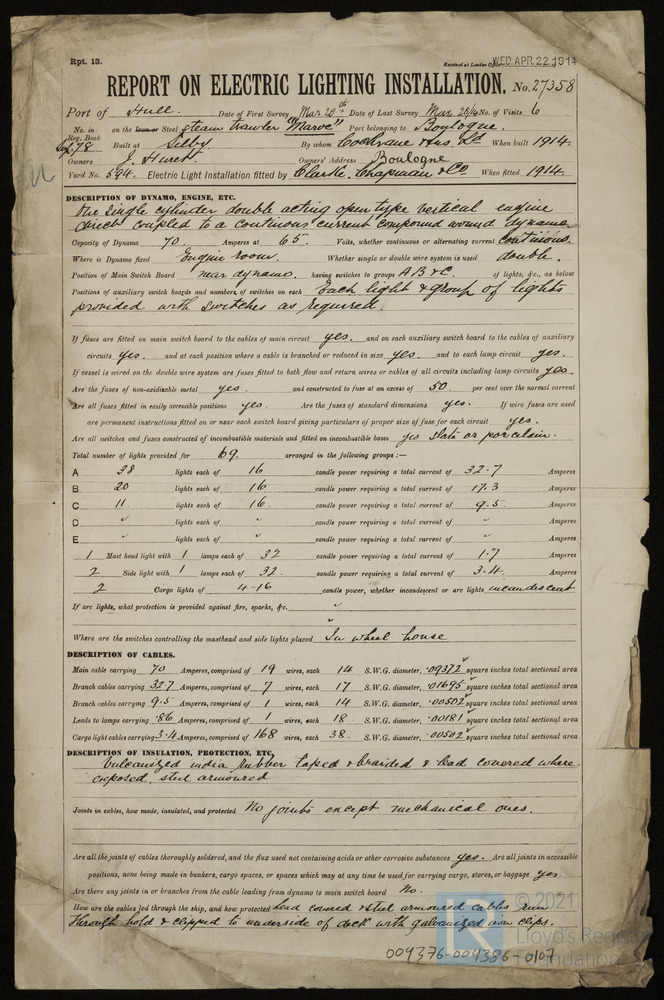 Rpt. 13.
Received at London Office WED. APR. 22. 1914
REPORT ON ELECTRIC LIGHTING INSTALLATION. No. 27358
Port of Hull. Date of First Survey Mar 20th Date of Last Survey Mar 28/14 No. of Visits 6
No. in Reg. Book 78 on the Iron or Steel steam trawler "Maroc" Port belonging to Boulogne
Built at Selby By whom Cochrane & Sons Ld When built 1914.
Owners J. Huret. Owners' Address Boulogne
Yard No. 594. Electric Light Installation fitted by Clarke, Chapman & Co When fitted 1914.
DESCRIPTION OF DYNAMO, ENGINE, ETC.
One single cylinder double acting open type vertical engine
direct coupled to a continous current compound wound dynamo.
Capacity of Dynamo 70. Amperes at 65. Volts, whether continuous or alternating current continous.
Where is Dynamo fixed Engine room. Whether single or double wire system is used double.
Position of Main Switch Board near dynamo. having switches to groups A B & C. of lights, &c., as below
Positions of auxiliary switch boards and numbers of switches on each Each light & group of lights
provided with switches as required.
If fuses are fitted on main switch board to the cables of main circuit yes. and on each auxiliary switch board to the cables of auxiliary
circuits yes. and at each position where a cable is branched or reduced in size yes. and to each lamp circuit yes.
If vessel is wired on the double wire system are fuses fitted to both flow and return wires or cables of all circuits including lamp circuits yes.
Are the fuses of non-oxidizable metal yes. and constructed to fuse at an excess of 50 per cent over the normal current
Are all fuses fitted in easily accessible positions yes. Are the fuses of standard dimensions yes. If wire fuses are used
are permanent instructions fitted on or near each switch board giving particulars of proper size of fuse for each circuit yes.
Are all switches and fuses constructed of incombustible materials and fitted on incombustible bases yes slate or porcelain.
Total number of lights provided for 69. arranged in the following groups :—
A 38 lights each of 16 candle power requiring a total current of 32.7 Amperes
B 20 lights each of 16 candle power requiring a total current of 17.3 Amperes
C 11 lights each of 16 candle power requiring a total current of 9.5 Amperes
D " lights each of " candle power requiring a total current of " Amperes
E " lights each of " candle power requiring a total current of " Amperes
1 Mast head light with 1 lamps each of 32 candle power requiring a total current of 1.7 Amperes
2 Side light with 1 lamps each of 32 candle power requiring a total current of 3.4 Amperes
2 Cargo lights of 4-16 candle power, whether incandescent or arc lights incandescent
If arc lights, what protection is provided against fire, sparks, &c. "
"
Where are the switches controlling the masthead and side lights placed In wheel house
DESCRIPTION OF CABLES.
Main cable carrying 70 Amperes, comprised of 19 wires, each 14 S.W.G. diameter, .09372 square inches total sectional area
Branch cables carrying 32.7 Amperes, comprised of 7 wires, each 17 S.W.G. diameter, .01695 square inches total sectional area
Branch cables carrying 9.5 Amperes, comprised of 1 wires, each 14 S.W.G. diameter, .00502 square inches total sectional area
Leads to lamps carrying .86 Amperes, comprised of 1 wires, each 18 S.W.G. diameter, .00181 square inches total sectional area
Cargo light cables carrying 3.4 Amperes, comprised of 168 wires, each 38. S.W.G. diameter, .00502 square inches total sectional area
DESCRIPTION OF INSULATION, PROTECTION, ETC.
Vulcanized india rubber taped & braided & lead covered where
exposed, steel armoured
Joints in cables, how made, insulated, and protected No joints except mechanical ones.
Are all the joints of cables thoroughly soldered, and the flux used not containing acids or other corrosive substances yes. Are all joints in accessible
positions, none being made in bunkers, cargo spaces, or spaces which may at any time be used for carrying cargo, stores, or baggage yes
Are there any joints in or branches from the cable leading from dynamo to main switch board No.
How are the cables led through the ship, and how protected Lead covered & steel armoured cables run
through hold & clipped to underside of deck with galvanized iron clips.
© 2021
Lloyd's Register
Foundation
009376-009386-0107